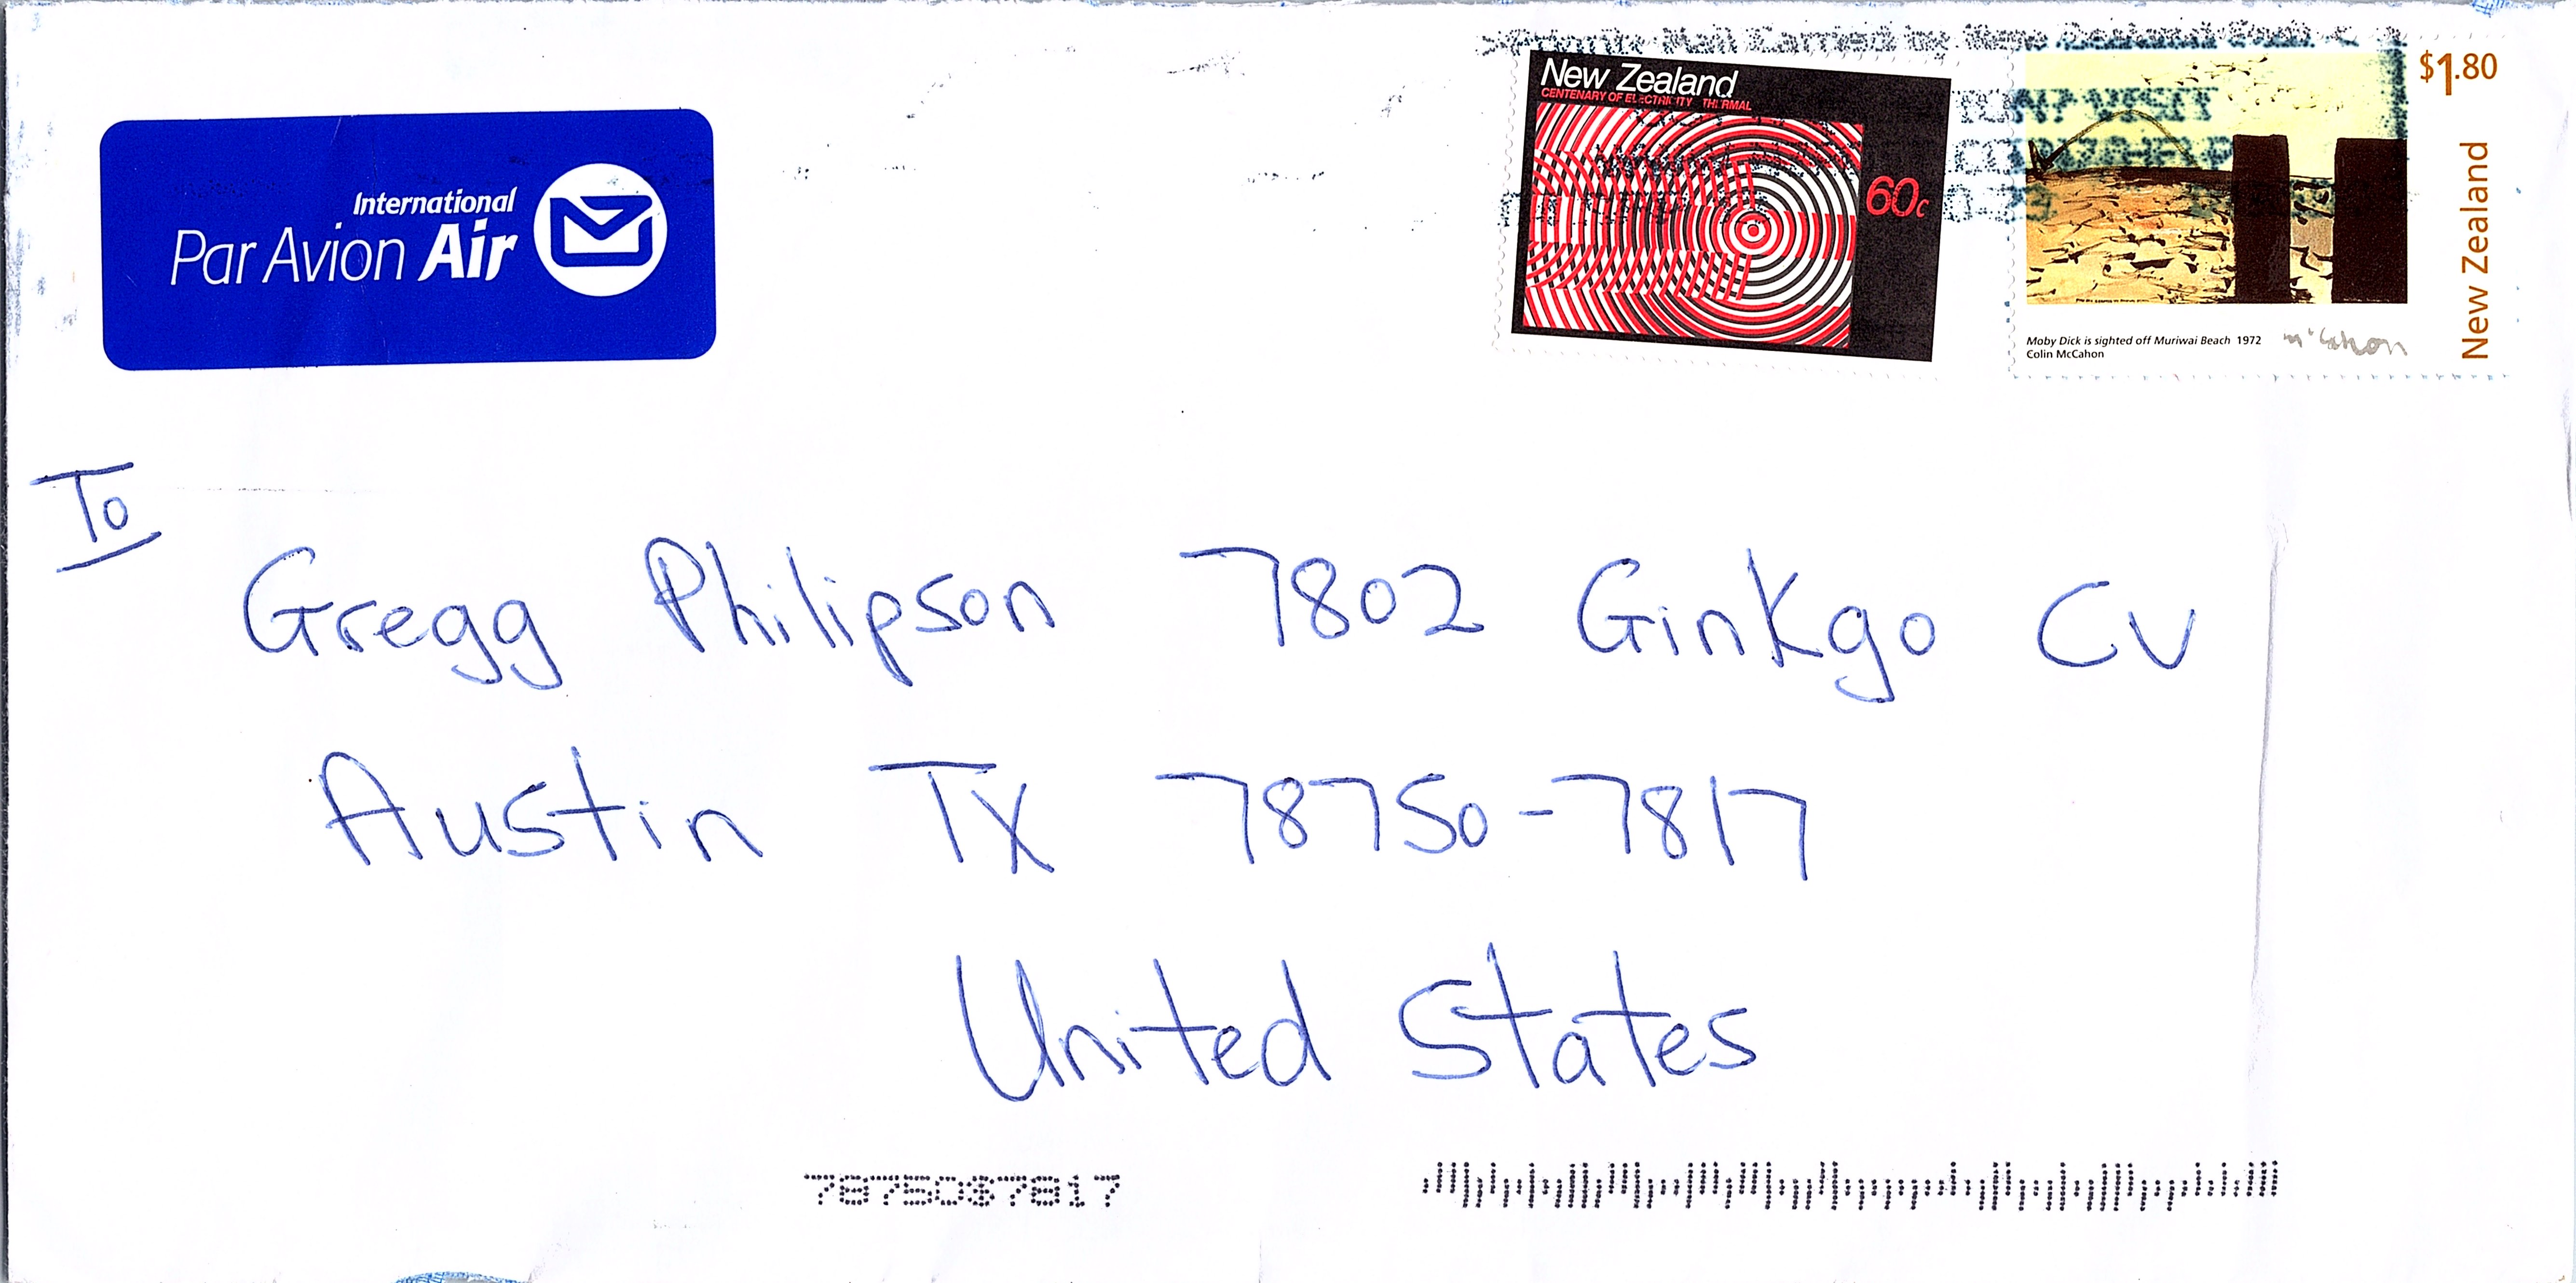 Priority Mail Carried by New Zealand Post
International
Par Avion Air
New Zealand
CENTENARY OF ELECTRICITY THERMAL
60c
$1.80
New Zealand
VISIT
Moby Dick is sighted off Muriwai Beach 1972
Colin McCahon
McCahon
To
Gregg Philipson 7802 Ginkgo CV
Austin TX 78750-7817
United States
78750$7817